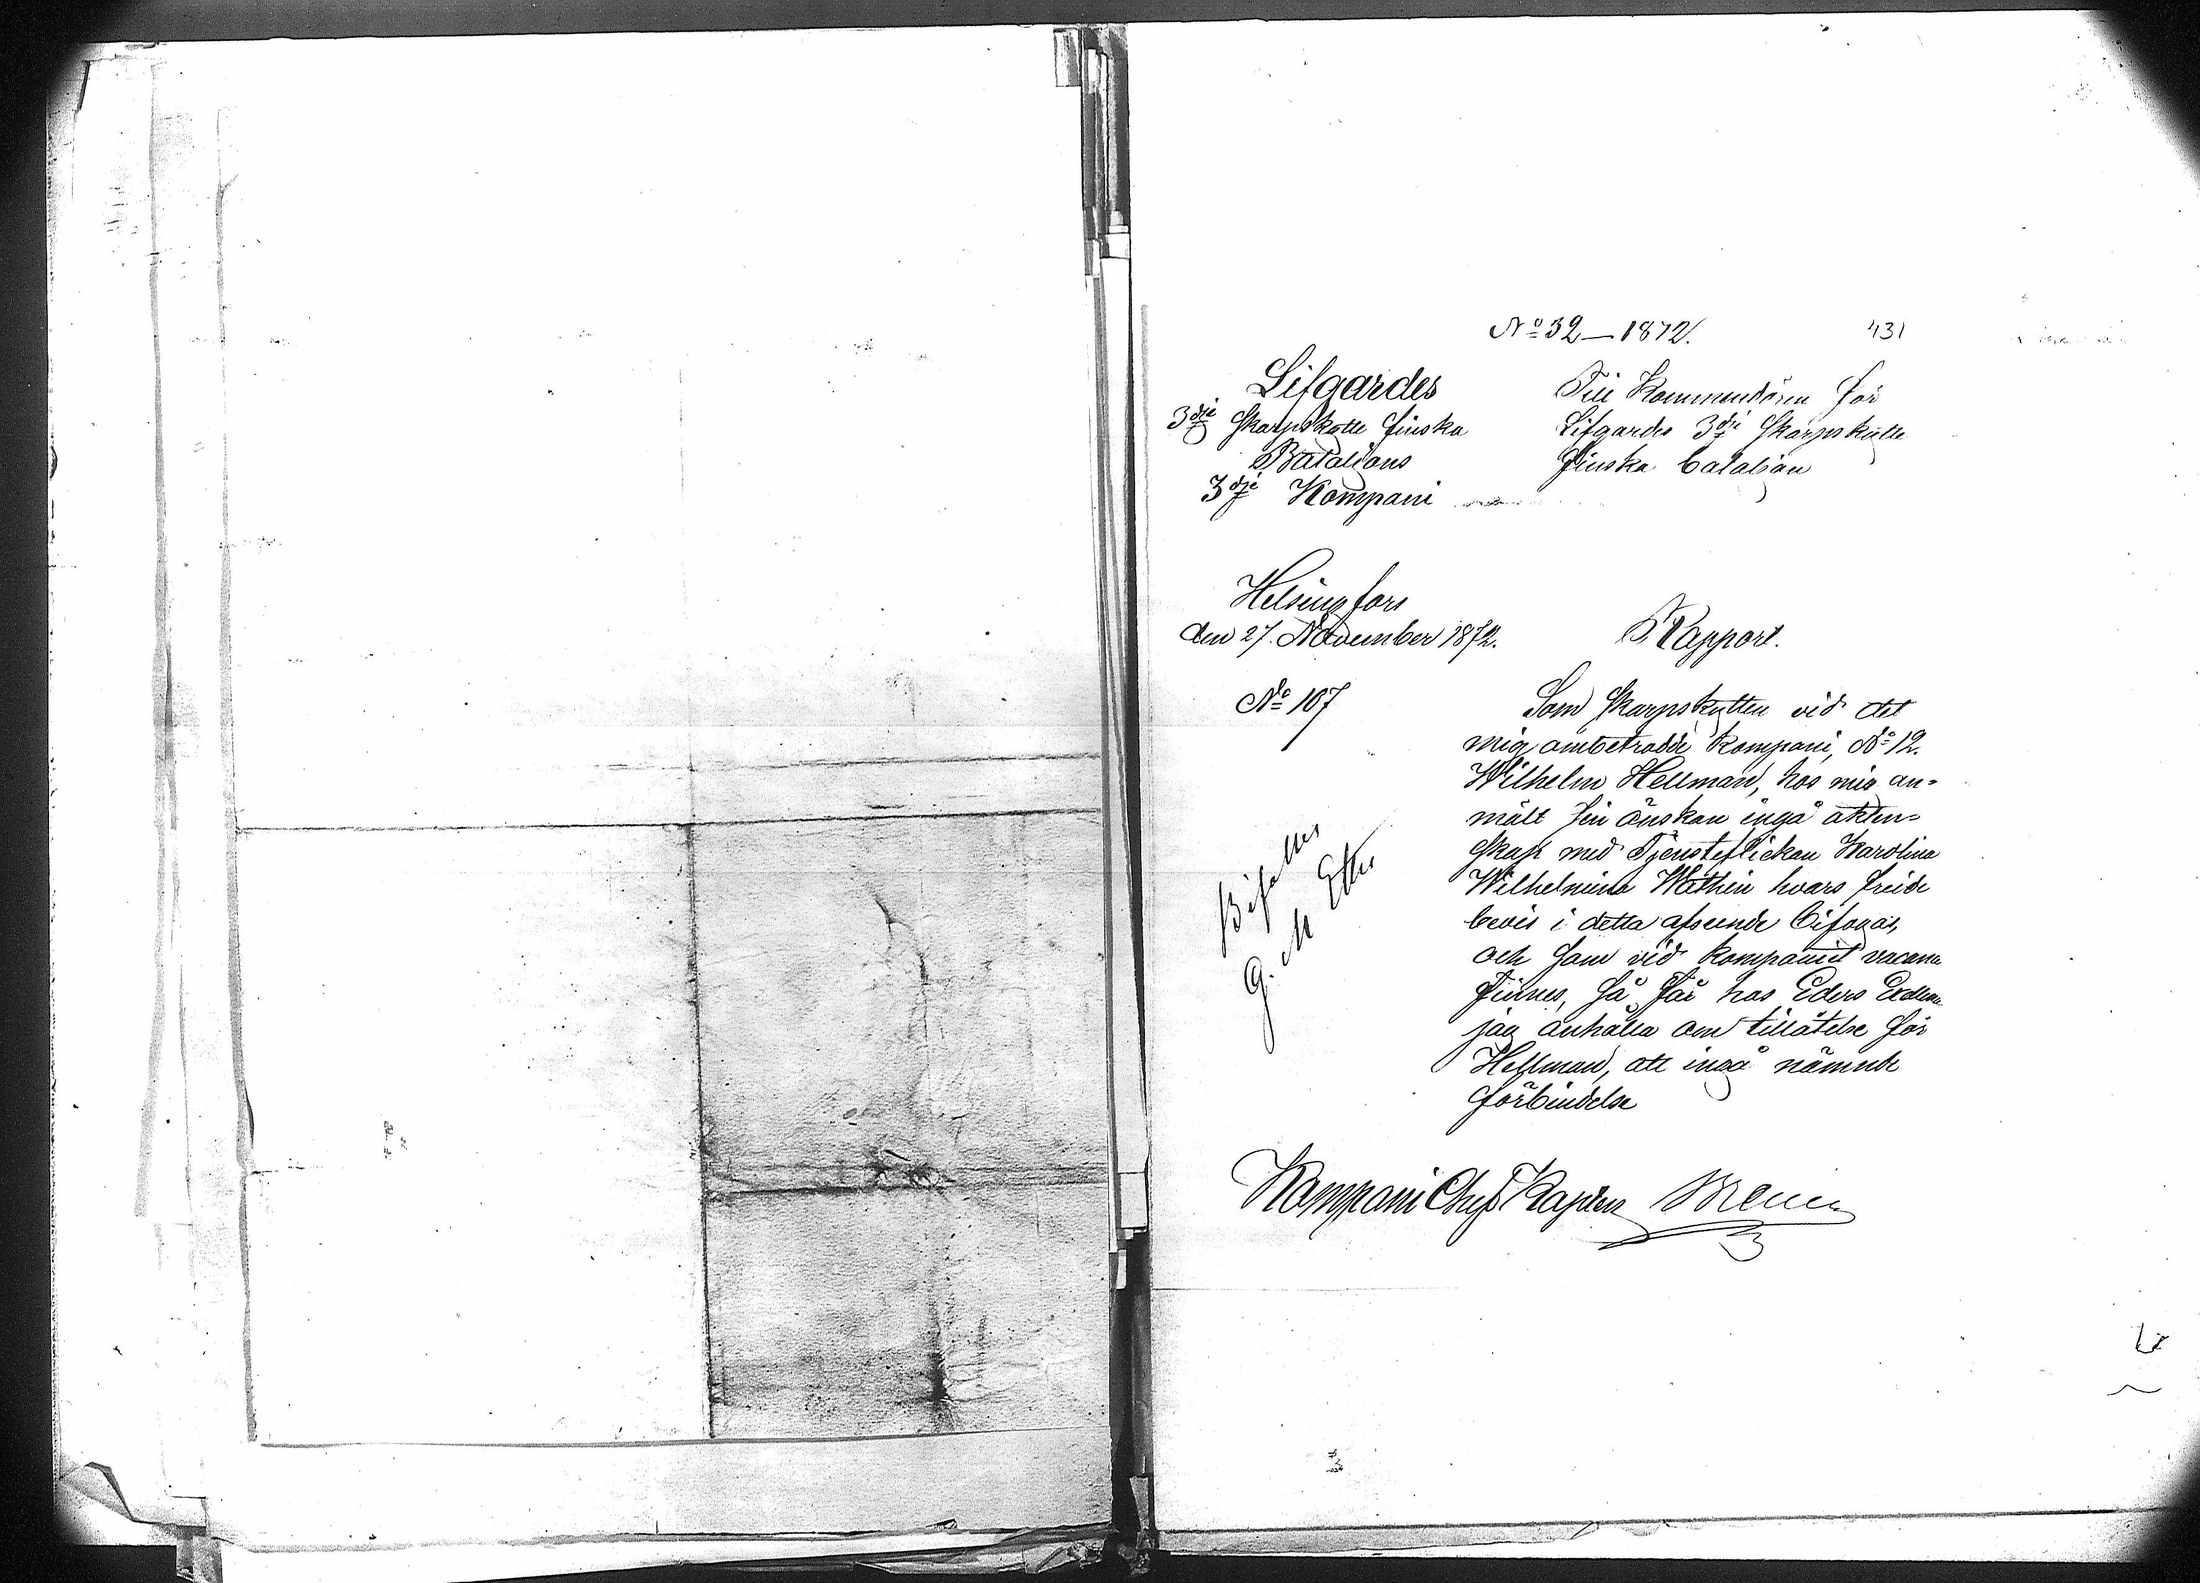 No 32 — 1872.
431
Lifgardes
3dje Skarpskytte Finska
Bataljons
3dje Kompani
Till Kommendören för
Lifgardes 3dje Skarpskytte
Finska bataljon
Helsingfors
den 27. November 1872.
No 107
Rapport.
Som Skarpskytten vid det
mig anbetrodde Kompani, No 12.
Wilhelm Hellman, hos mig an=
mält sin önskan ingå äkten=
skap med Tjensteflickan Karolina
Wilhelmina Wathén hvars frejde
bevis i detta afseende bifogas,
och som vid kompaniet vacans
finnes, så får hos Eders
jag anhålla om tillåtelse för
Hellman, att ingå nämnde
förbindelse
Bifalles
G. M. Etter
Kompani Chef Kapten
3